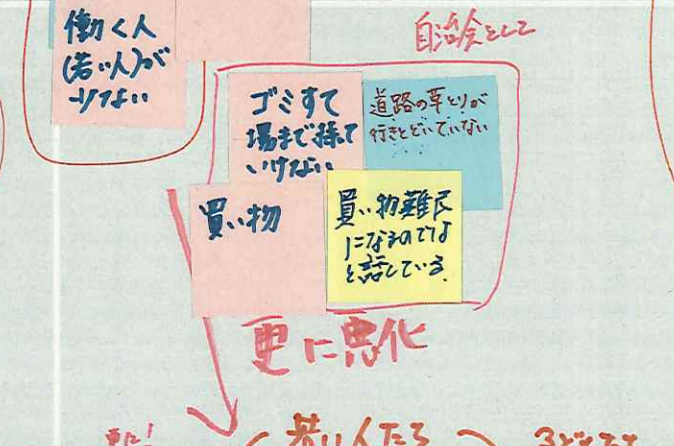 働く人
(若い人)が
少ない
自治会として
ゴミすて
場まで持って
いけない
道路の草とりが
行きとどいていない
買い物
買い物難民
になるのでは
と話している。
更に悪化
更に!
若い人たち